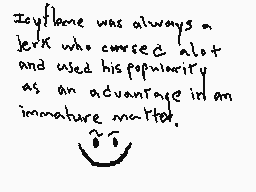 Icyflame was always a
jerk who cursed alot
and used his popularity
as an advantage in an
immature matter.